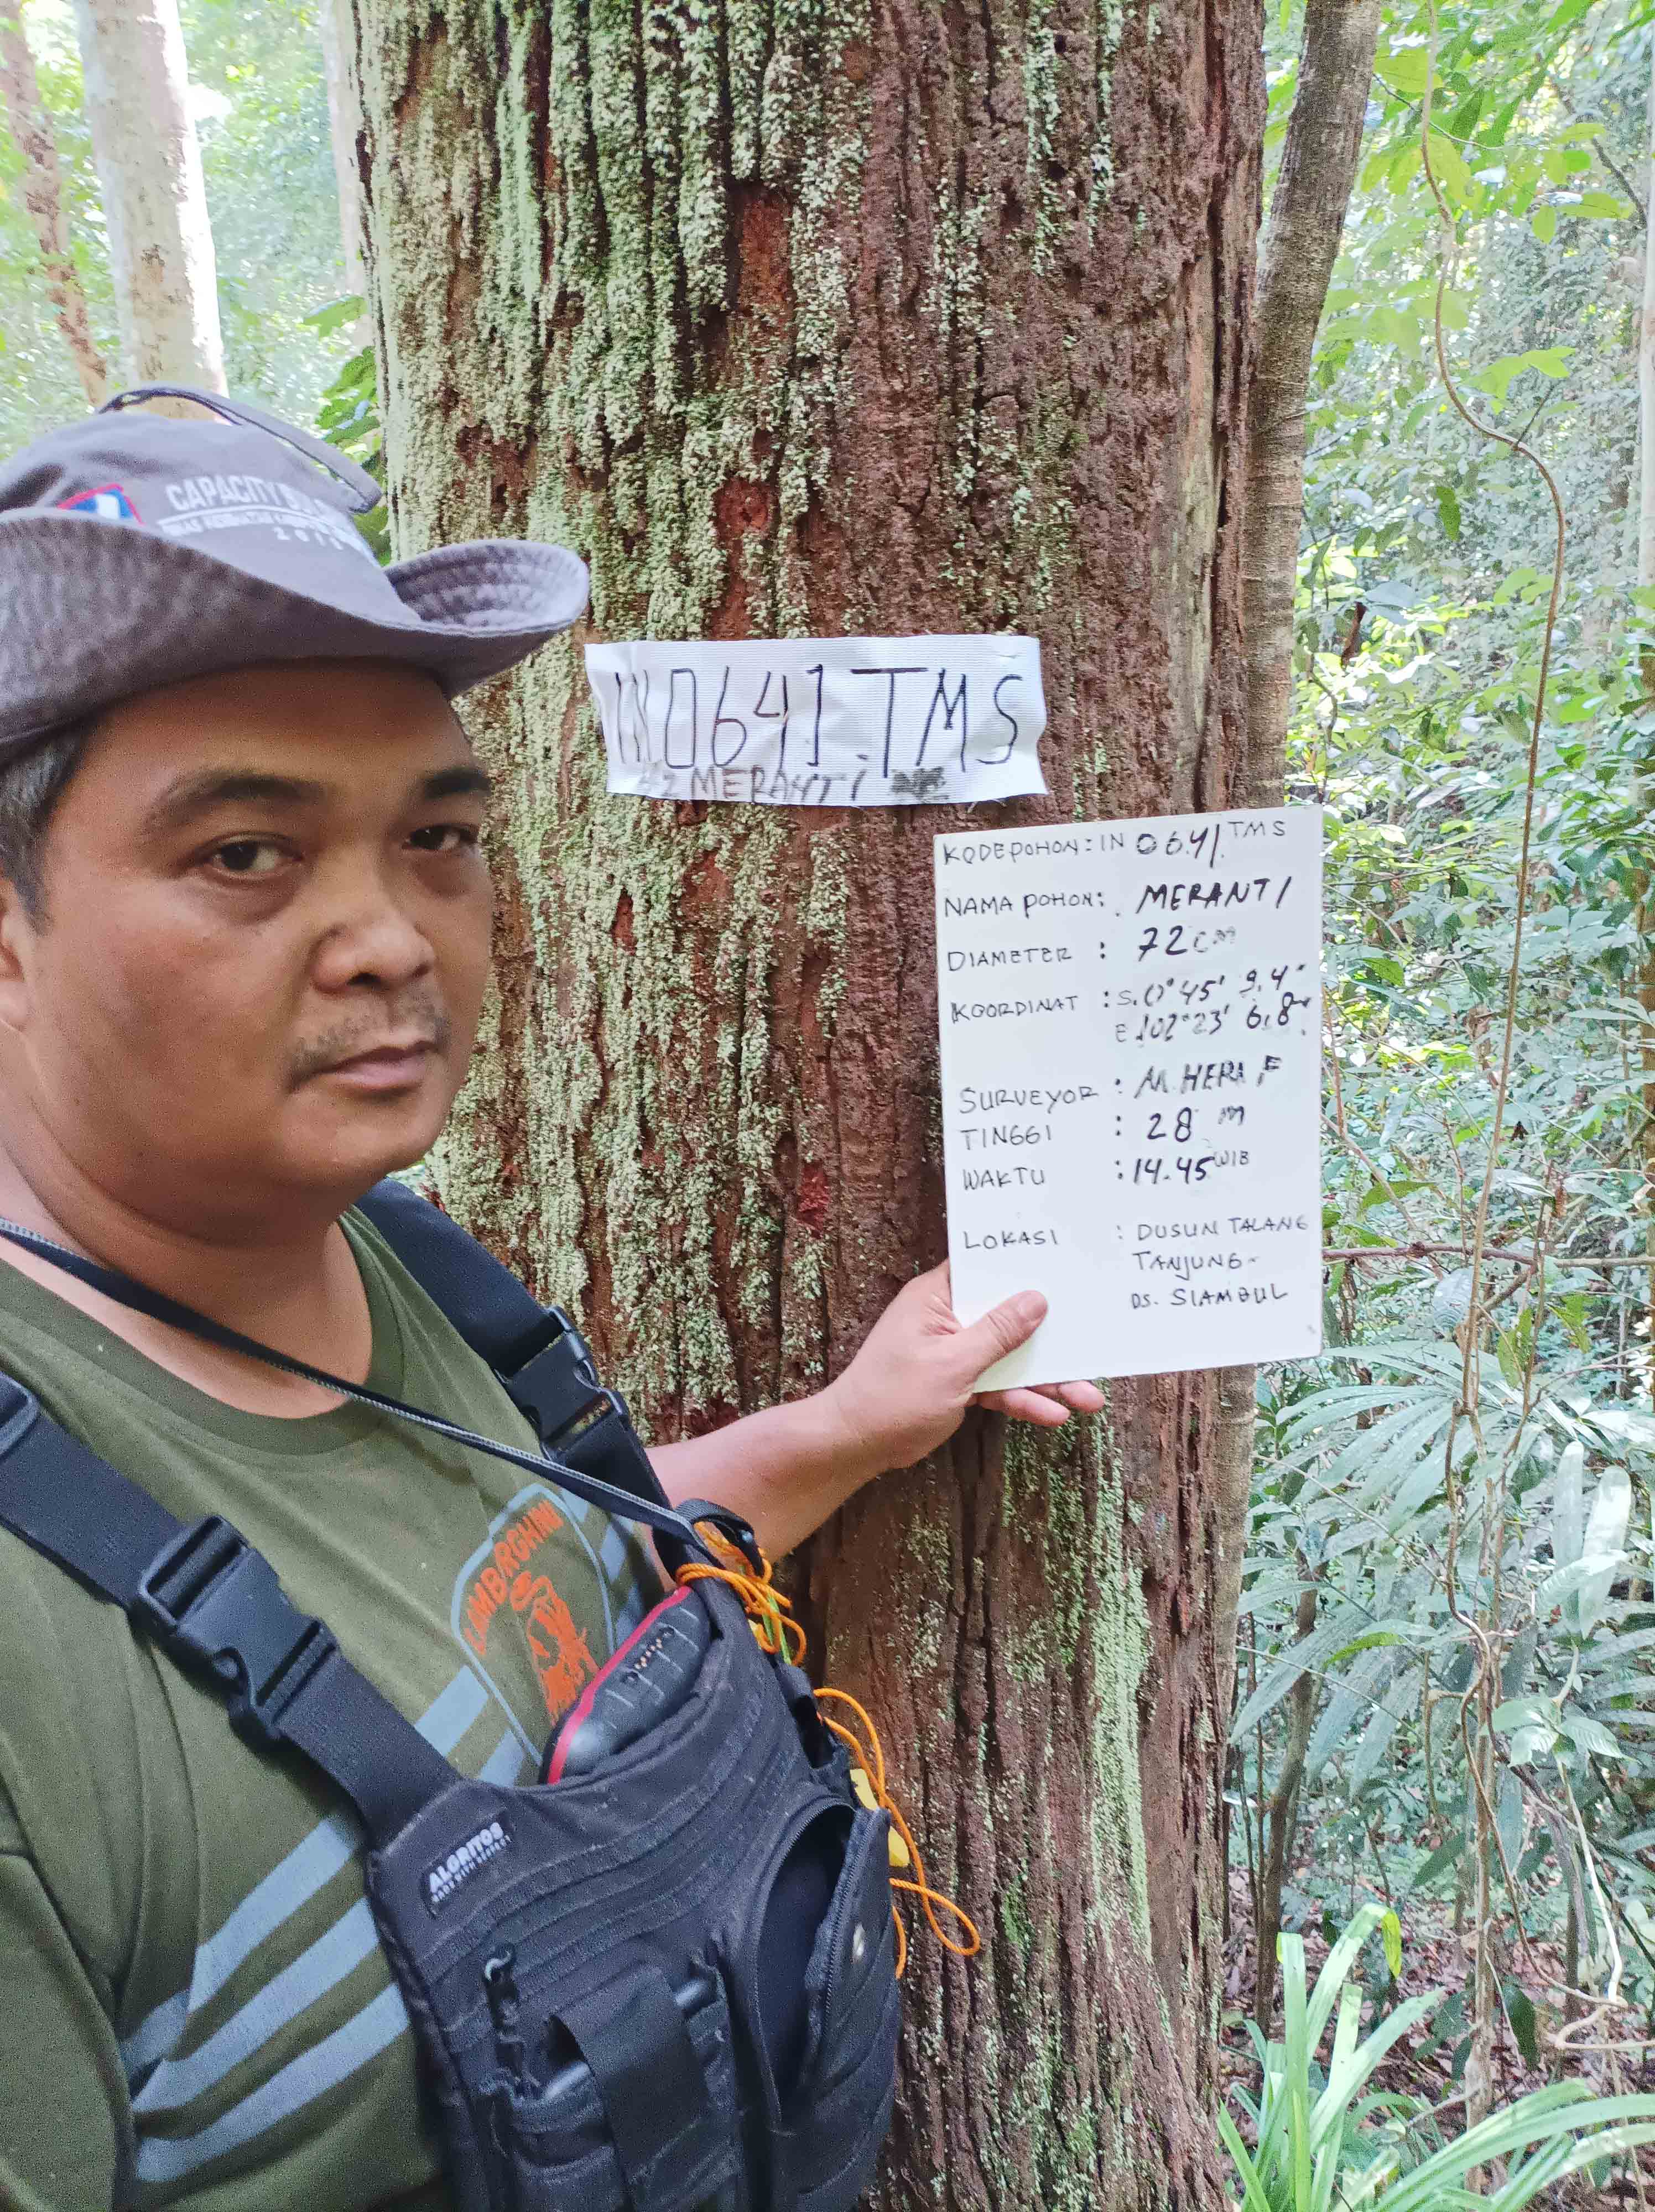 CAPACITY
IN0641.TMS
MERANTI
KODE POHON : IN 0641. TMS
NAMA POHON : MERANTI
DIAMETER : 72 CM
KOORDINAT : S. 0° 45' 9,4"
E 102° 23' 6,8"
SURVEYOR : M. HERA F
TINGGI : 28 m
WAKTU : 14.45 WIB
LOKASI : DUSUN TALANG
TANJUNG -
DS. SIAMBUL
LAMBORGHINI
ALORITOS